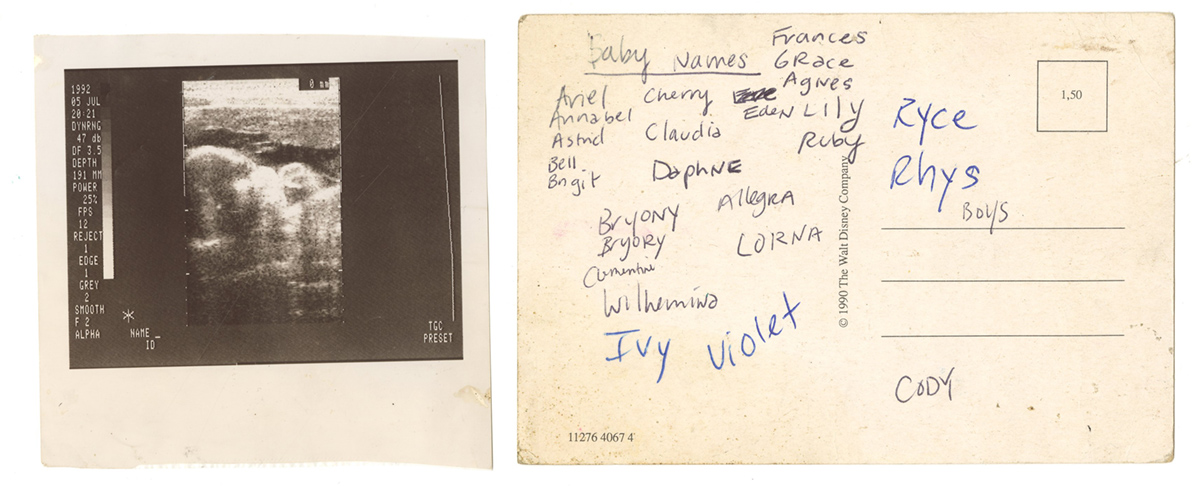 1992
05 JUL
20 21
DYNRNG
47 db
DF 3.5
DEPTH
191 MM
POWER
25%
FPS
12
REJECT
1
EDGE
1
GREY
2
SMOOTH
F 2
ALPHA
0 mm
NAME _
ID
TGC
PRESET
Baby Names
Ariel
Annabel
Astrid
Bell
Brigit
Cherry
Claudia
Daphne
Bryony
Bryory
Clementine
Wilhemina
Ivy
Violet
Allegra
LORNA
Frances
GRace
Agnes
Eden
Lily
Ruby
© 1990 The Walt Disney Company
11276 4067 4
1,50
Ryce
Rhys
BOYS
CODY